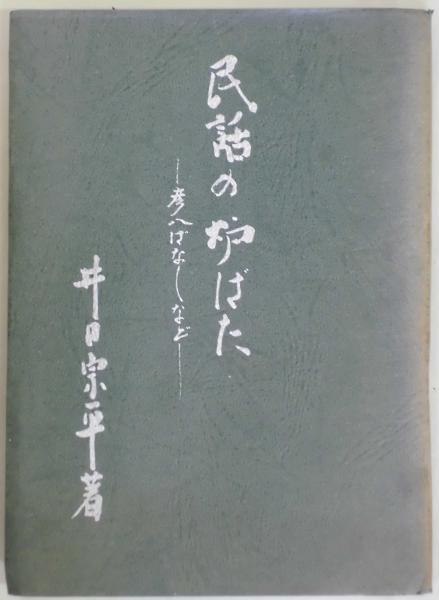 民話の炉ばた
―彦八ばなしなど―
井口宗平著